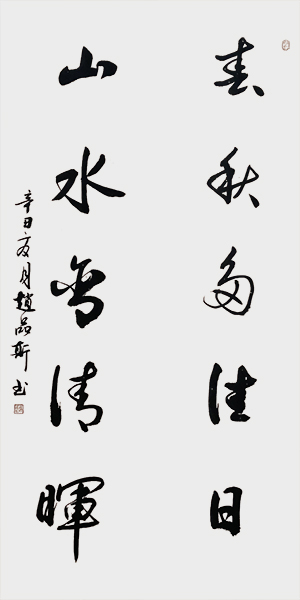 春秋多佳日
山水含清暉
辛丑夏月趙品斯书